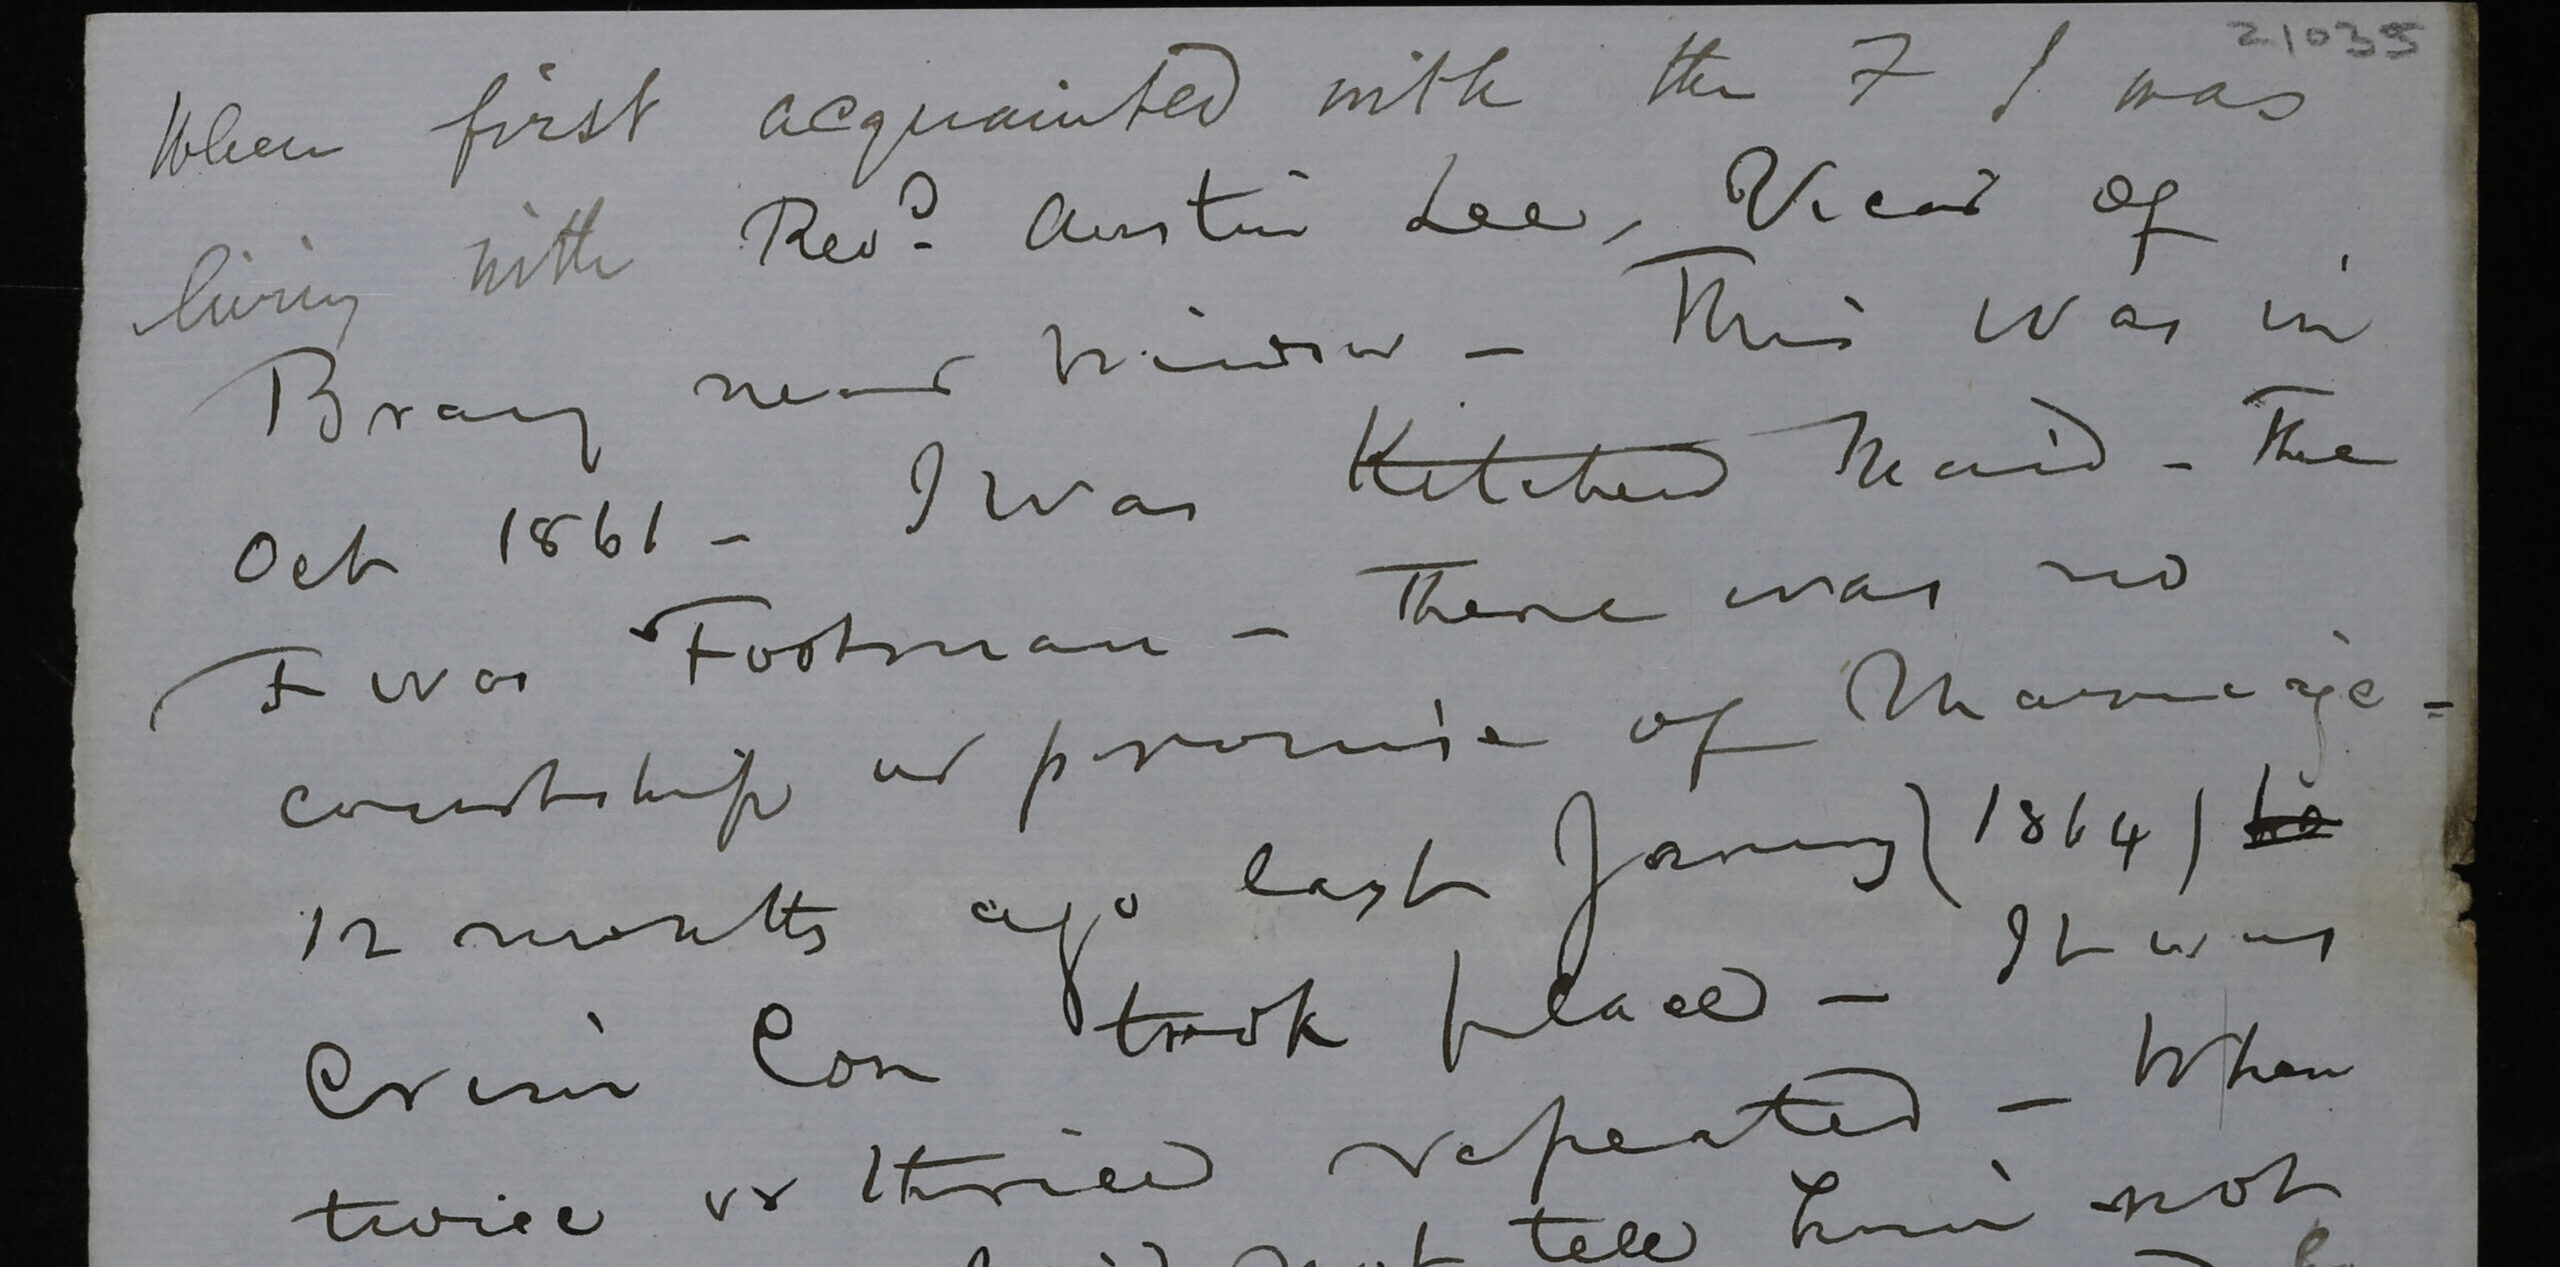 21035
When first acquainted with the F I was
living with Revd Austin Lee, Vicar of
Bray near Windsor - This was in
Oct 1861 - I was Kitchen Maid - The
F was Footman - There was no
courtship or promise of Marriage -
12 months ago last Janury (1864) he
Crim Con took place - It was
twice or thrice repeated - When
not tell him not